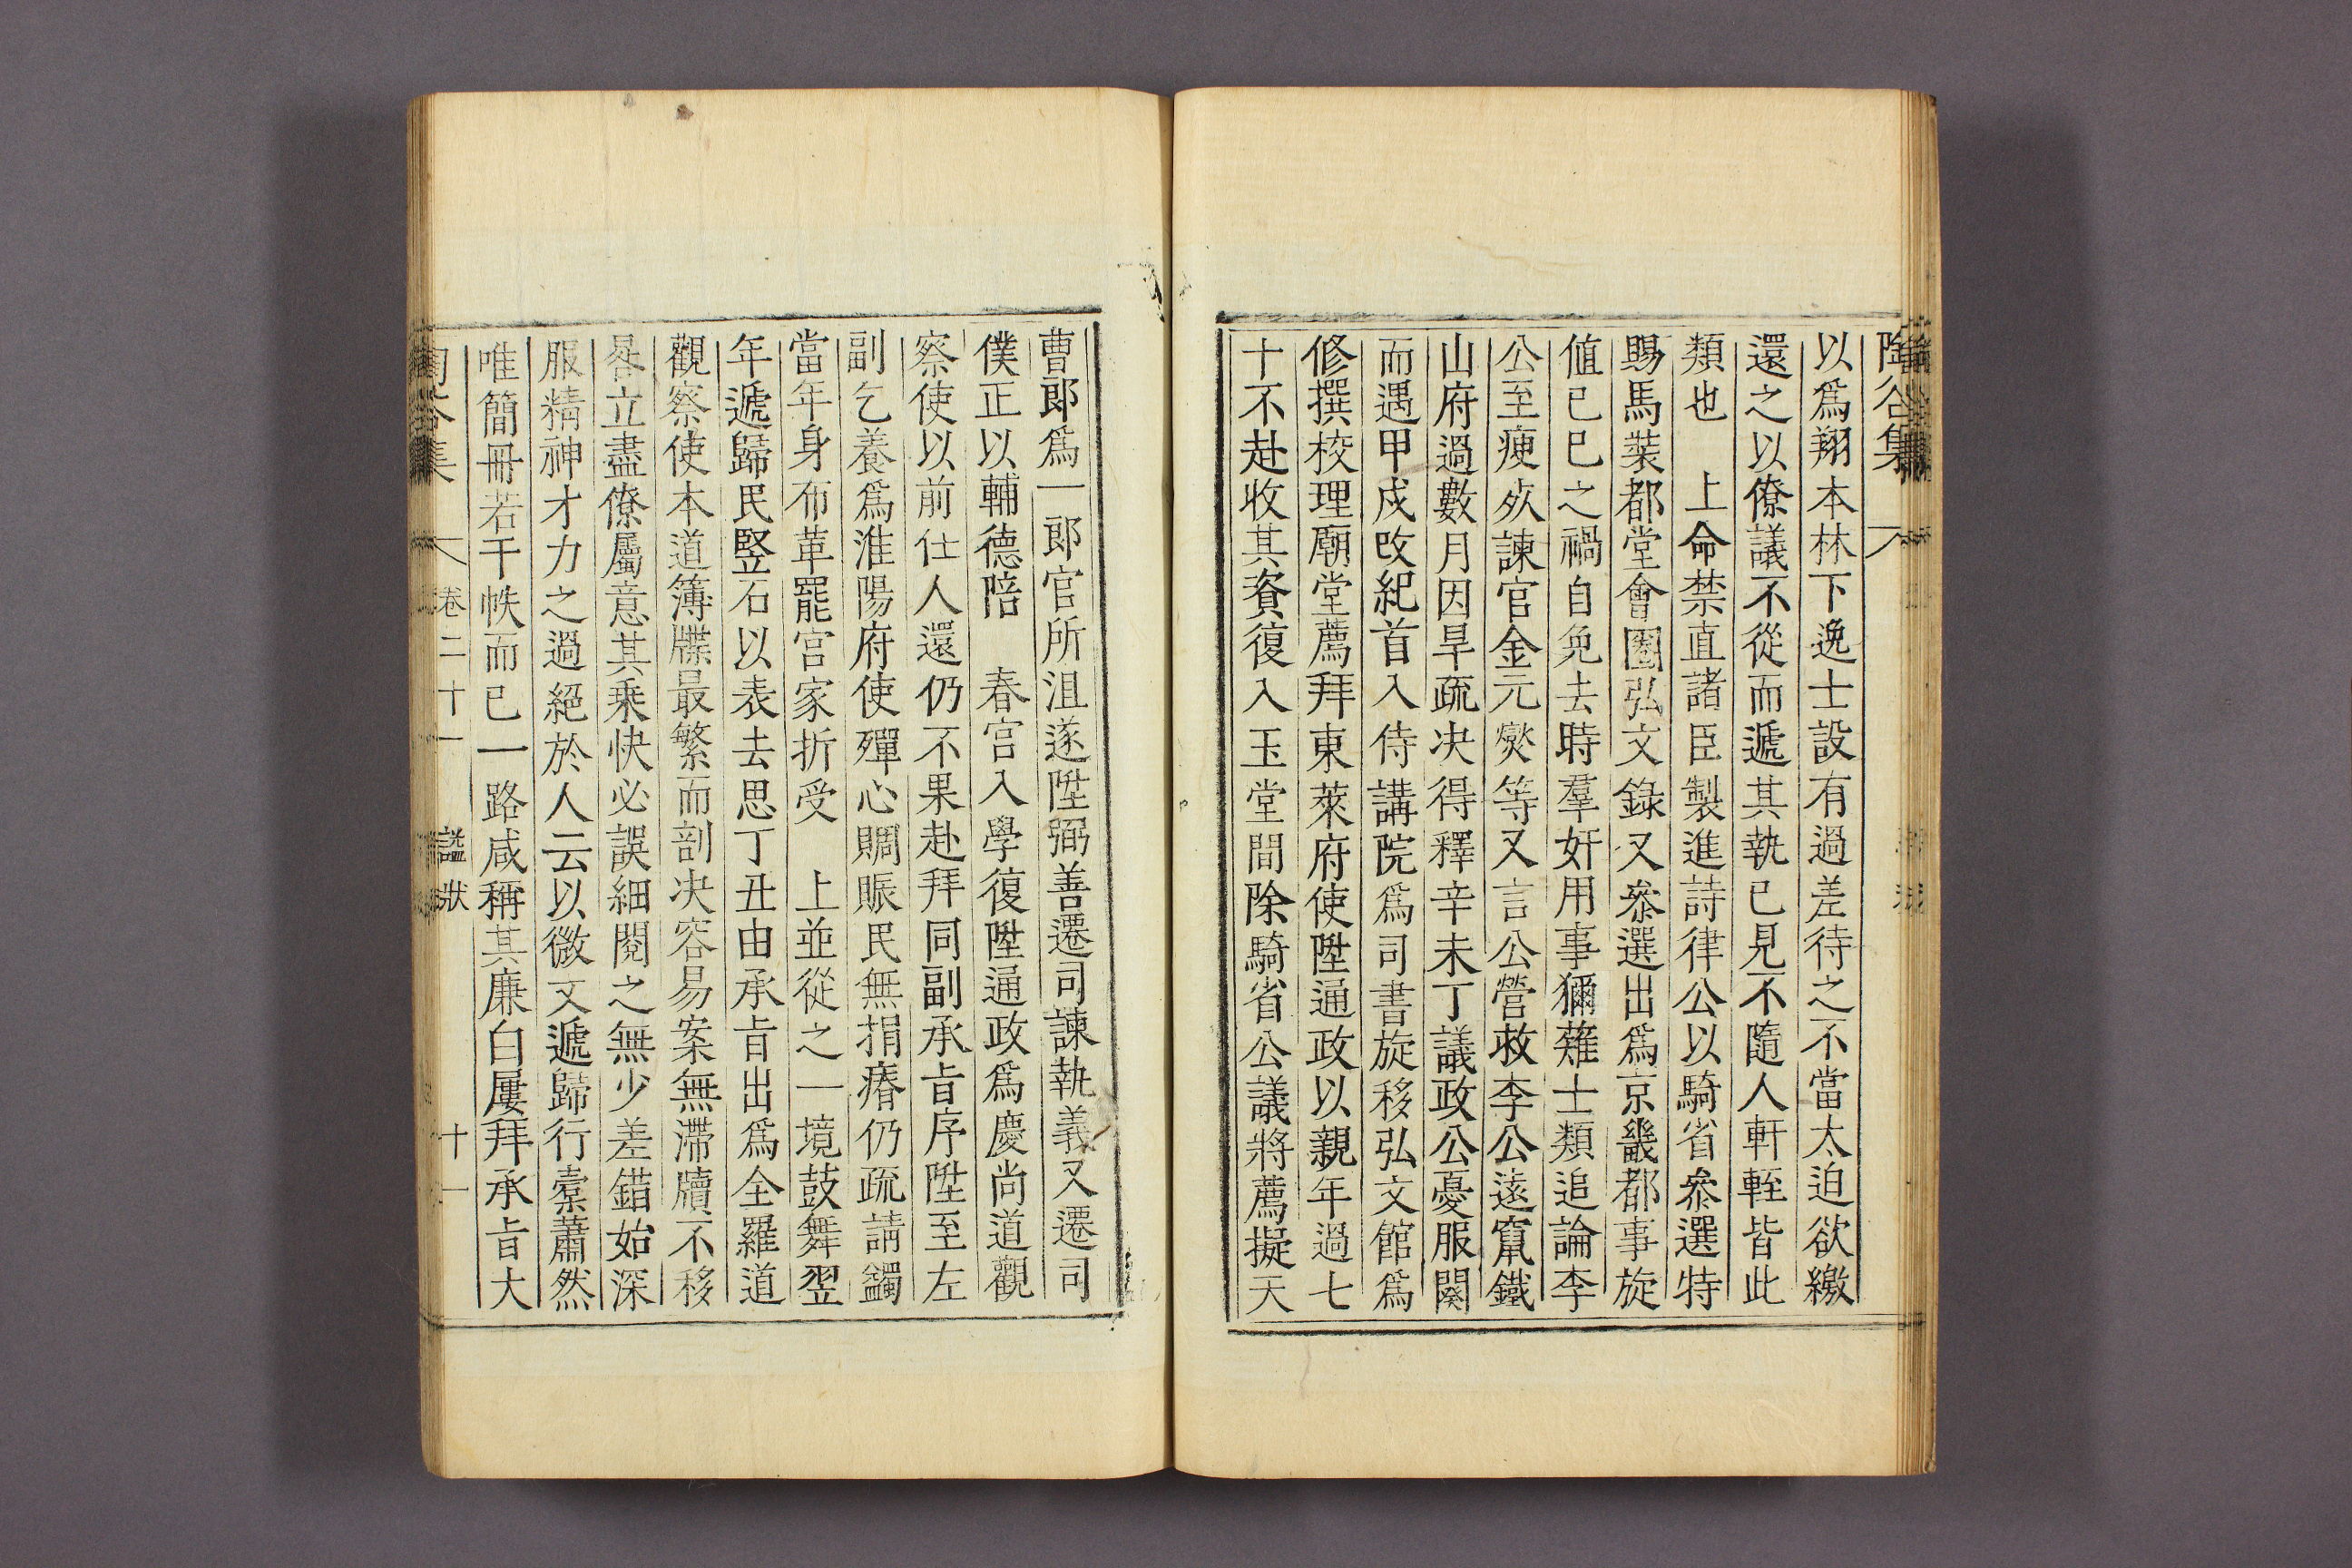 陶谷集
以爲翔本林下逸士設有過差待之不當太迫欲繳
還之以僚議不從而遞其執已見不隨人軒輊皆此
類也 上命禁直諸臣製進詩律公以騎省叅選特
賜馬裝都堂會圈弘文錄又叅選出爲京畿都事旋
値己巳之禍自免去時羣奸用事獮薙士類追論李
公至瘐死諫官金元燮等又言公營救李公遠竄鐵
山府過數月因旱疏决得釋辛未丁議政公憂服闋
而遇甲戌改紀首入侍講院爲司書旋移弘文館爲
修撰校理廟堂薦拜東萊府使陞通政以親年過七
十不赴收其資復入玉堂間除騎省公議將薦擬天
曹郎爲一郎官所沮遂陞弼善遷司諫執義又遷司
僕正以輔德陪 春宮入學復陞通政爲慶尚道觀
察使以前仕人還仍不果赴拜同副承旨序陞至左
副乞養爲淮陽府使殫心賙賑民無捐瘠仍疏請蠲
當年身布革罷宮家折受 上並從之一境鼓舞翌
年遞歸民竪石以表去思丁丑由承旨出爲全羅道
觀察使本道簿牒最繁而剖决容易案無滯牘不移
晷立盡僚屬意其乗快必誤細閱之無少差錯始深
服精神才力之過絕於人云以微文遞歸行槖蕭然
唯簡冊若干帙而已一路咸稱其廉白屢拜承旨大
陶谷集 卷二十一 諡狀 十一